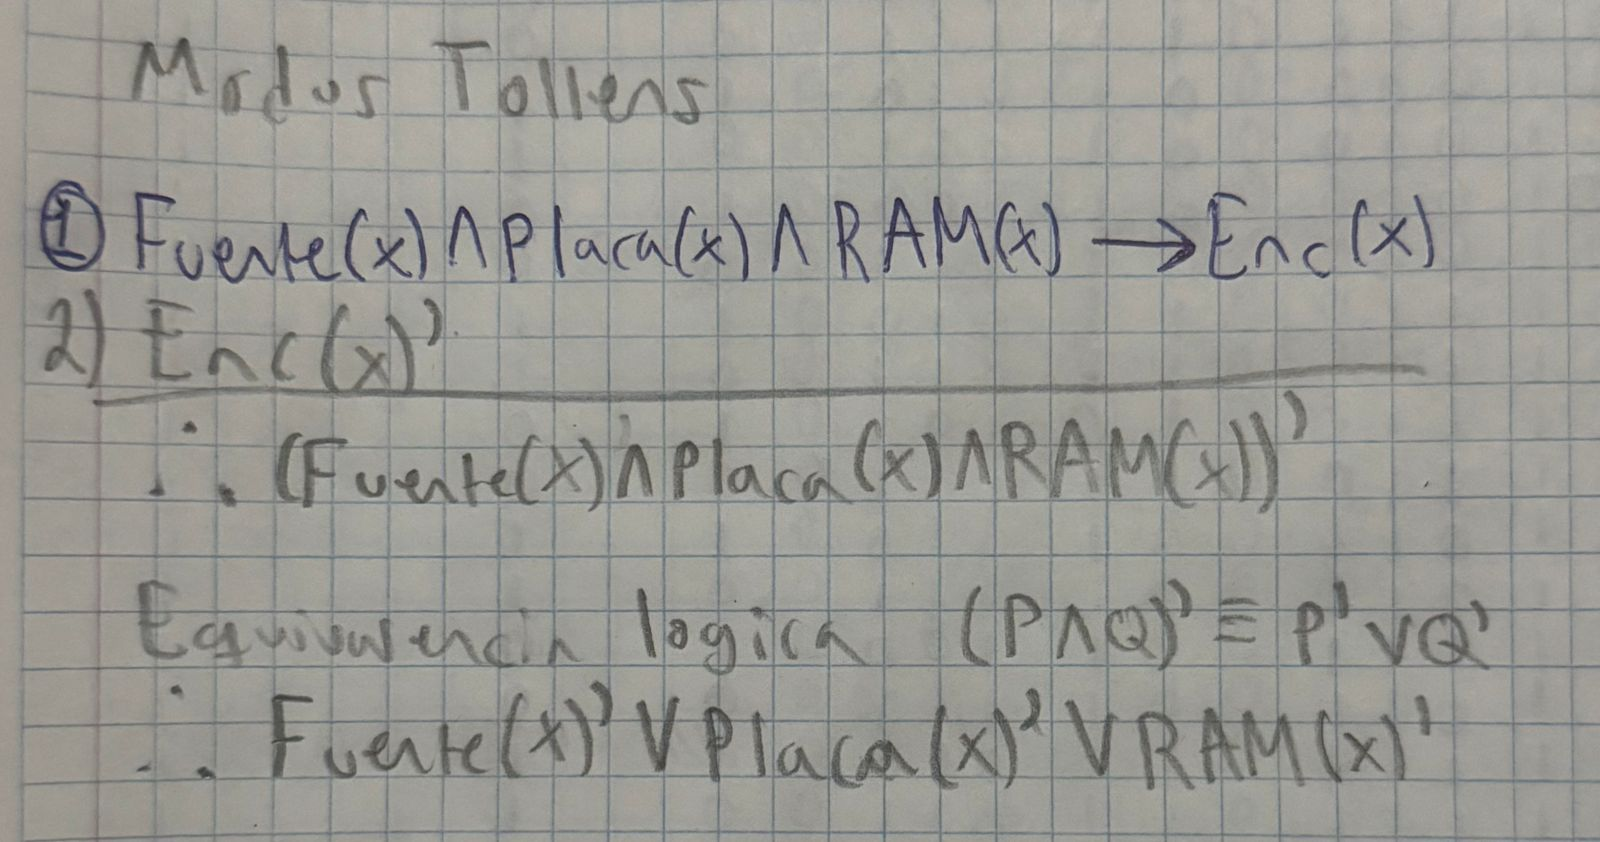 Modus Tollens
① Fuente(x) ∧ Placa(x) ∧ RAM(x) → Enc(x)
2) Enc(x)'
∴ (Fuente(x) ∧ Placa(x) ∧ RAM(x))'
Equivalencia logica (P∧Q)' ≡ P' ∨ Q'
∴ Fuente(x)' ∨ Placa(x)' ∨ RAM(x)'